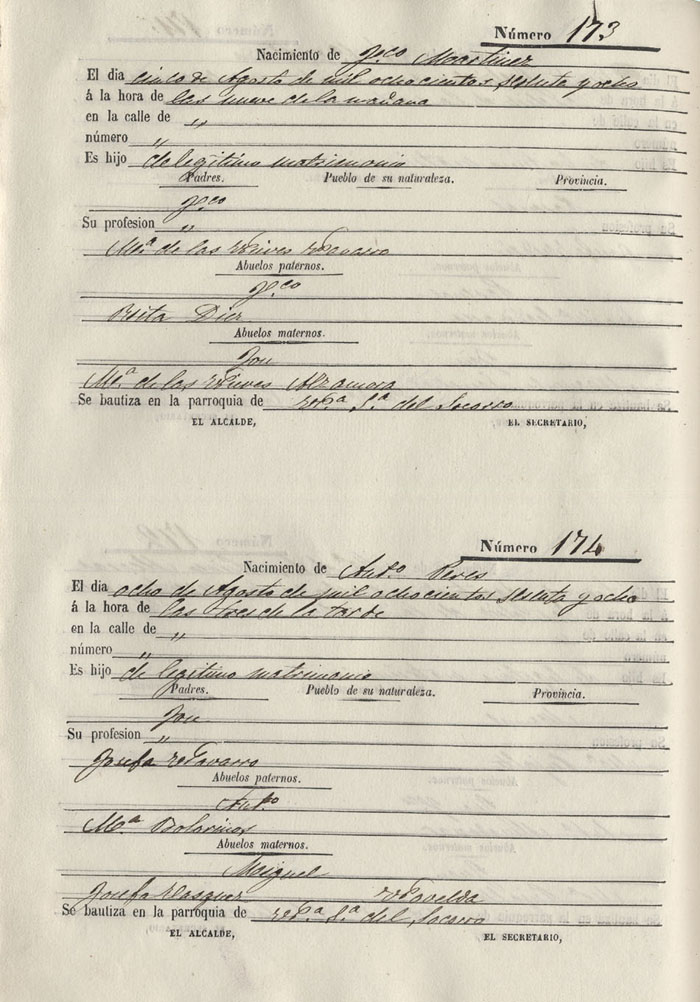 Número 173
Nacimiento de Fco Martinez
El dia cinco de Agosto de mil ochocientos sesenta y ocho
á la hora de las nueve de la mañana
en la calle de "
número "
Es hijo de legitimo matrimonio
Padres. Pueblo de su naturaleza. Provincia.
Fco
Su profesion "
Mª de las Nieves Navarro
Abuelos paternos.
Fco
Rita Diez
Abuelos maternos.
José
Mª de las Nieves
Se bautiza en la parroquia de Ntra Sra del Socorro
EL ALCALDE, EL SECRETARIO,
Número 174
Nacimiento de Anto Peres
El dia ocho de Agosto de mil ochocientos sesenta y ocho
á la hora de las tres de la tarde
en la calle de "
número "
Es hijo de legitimo matrimonio
Padres. Pueblo de su naturaleza. Provincia.
José
Su profesion "
Josefa Navarro
Abuelos paternos.
Anto
Mª Bolarinos
Abuelos maternos.
Miguel
Josefa Vasquez Novelda
Se bautiza en la parroquia de Ntra Sra del Socorro
EL ALCALDE, EL SECRETARIO,